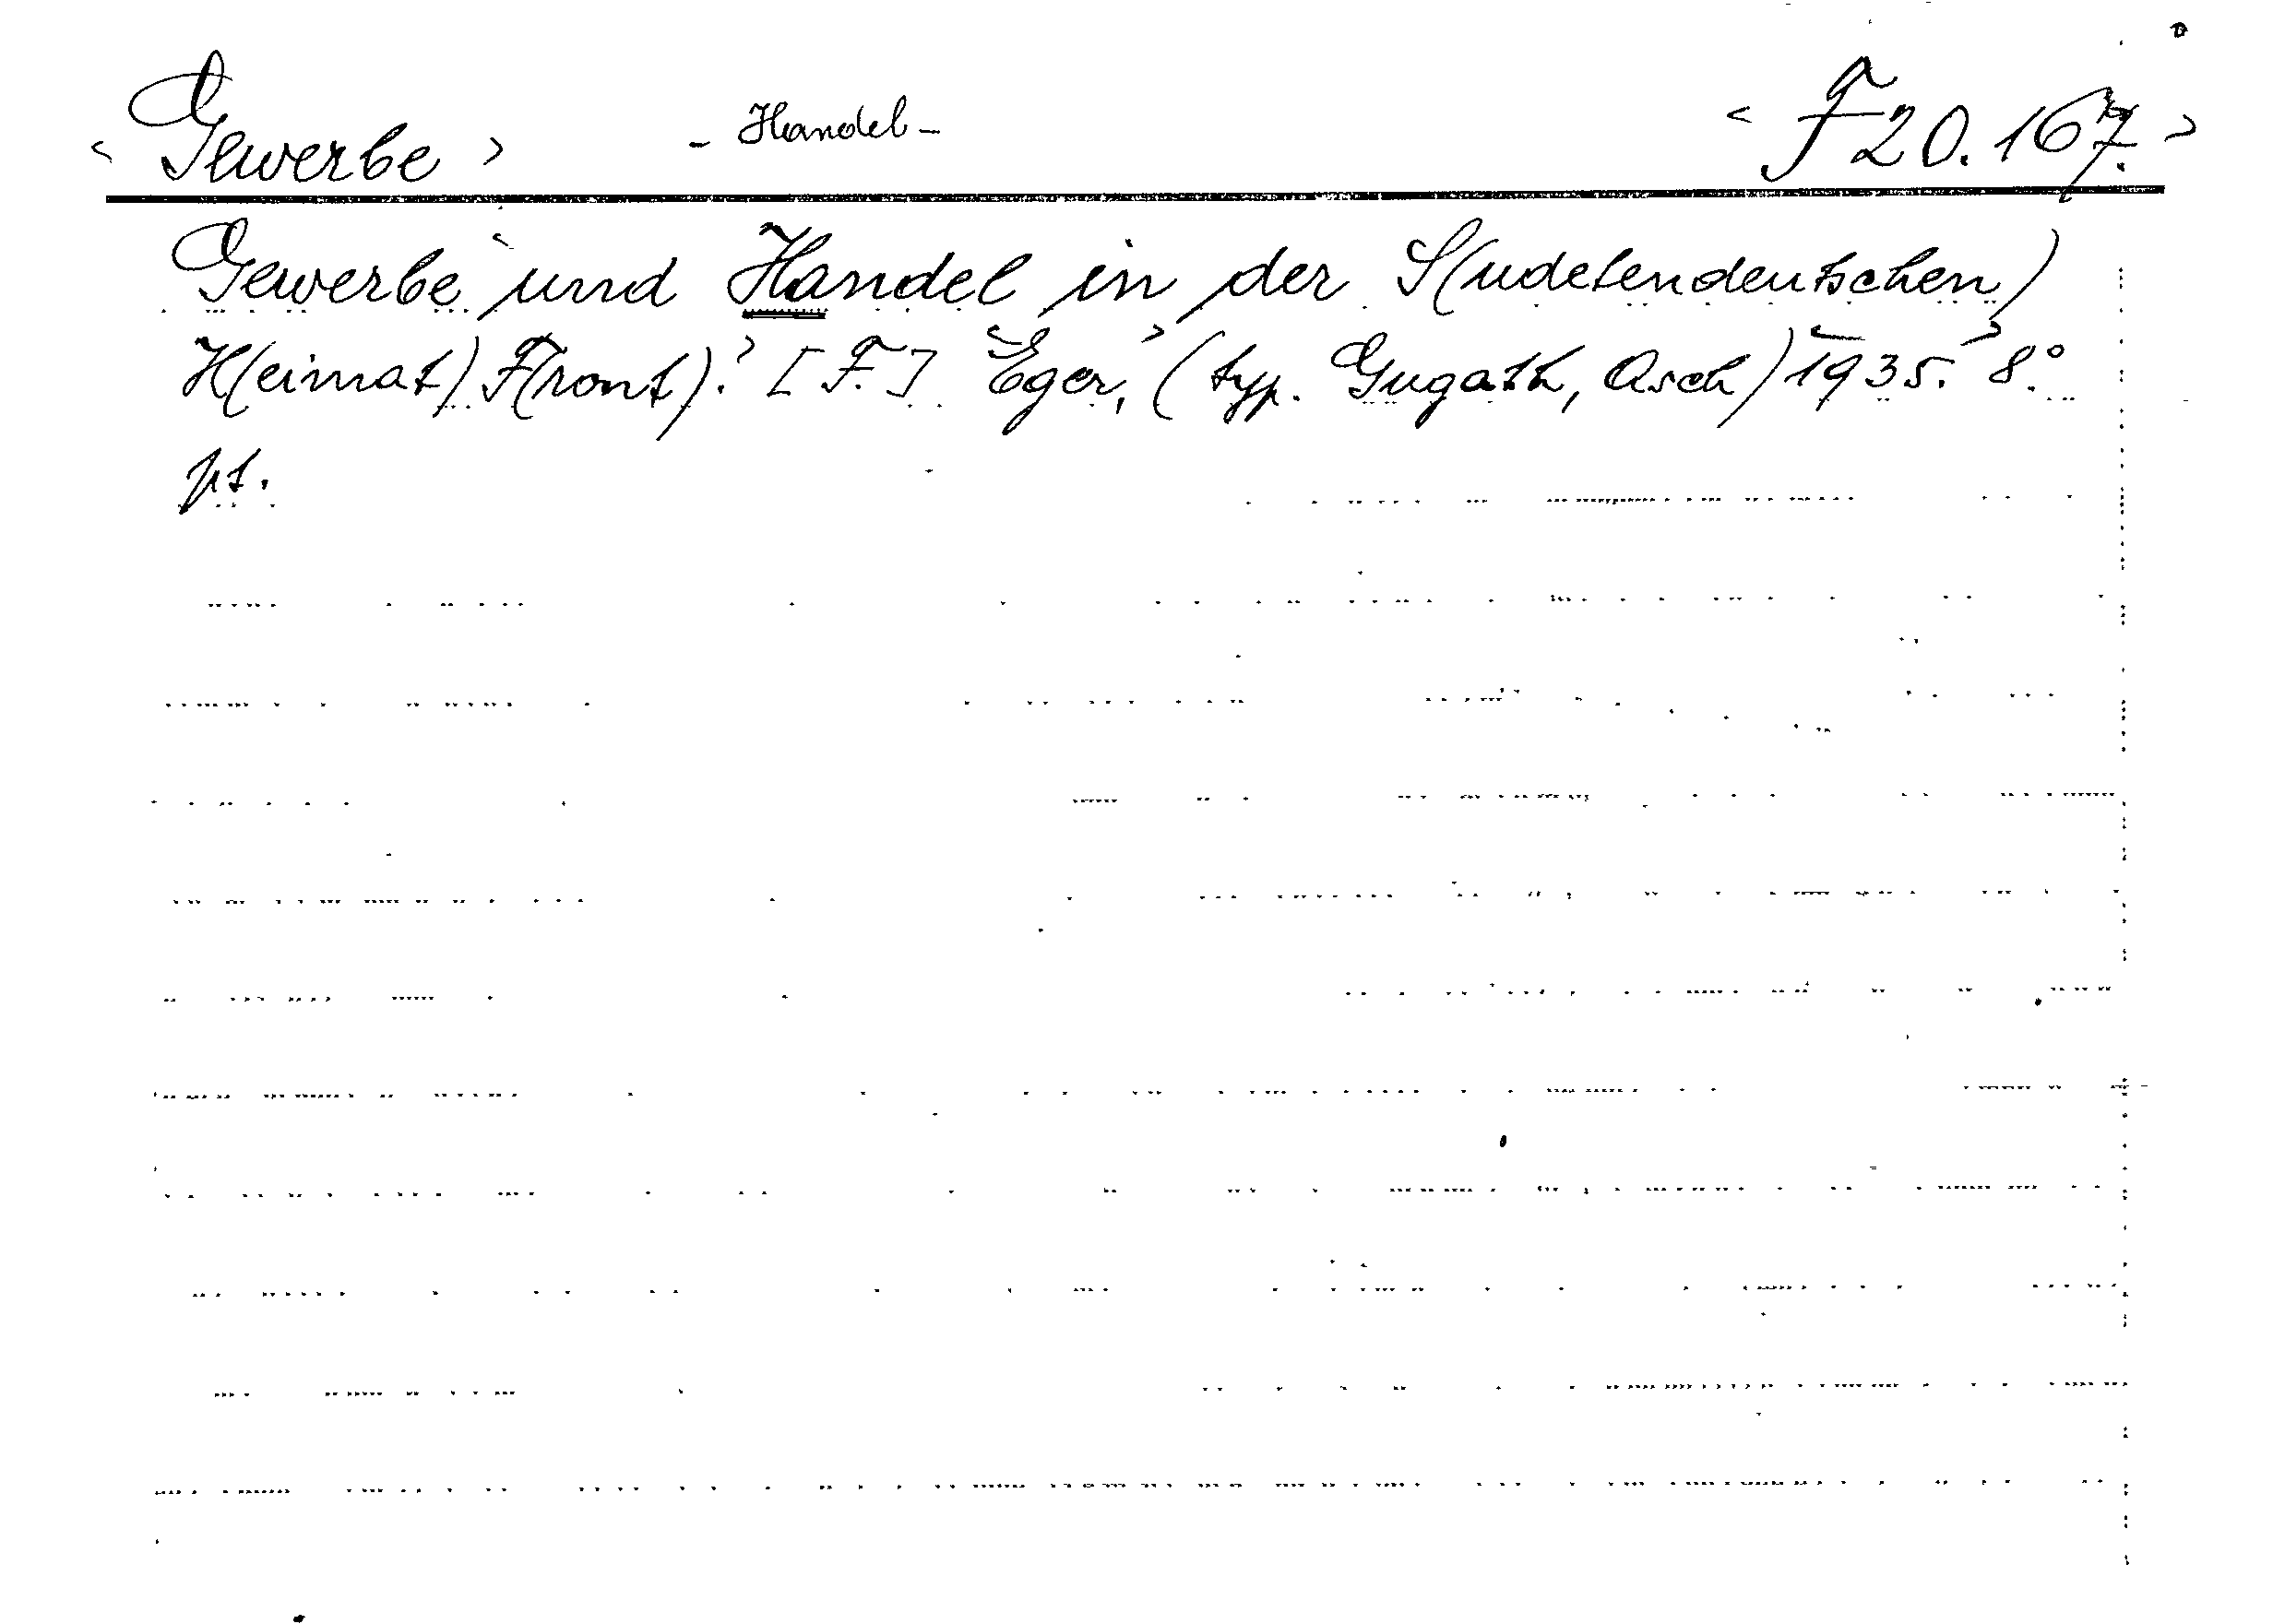 < Gewerbe > - Handel - < F 20.167. >
Gewerbe und Handel in der S(udetendeutschen)
H(eimat) F(ront). [F.] Eger, (typ. Gugath, Asch) 1935. 8.°
pt.